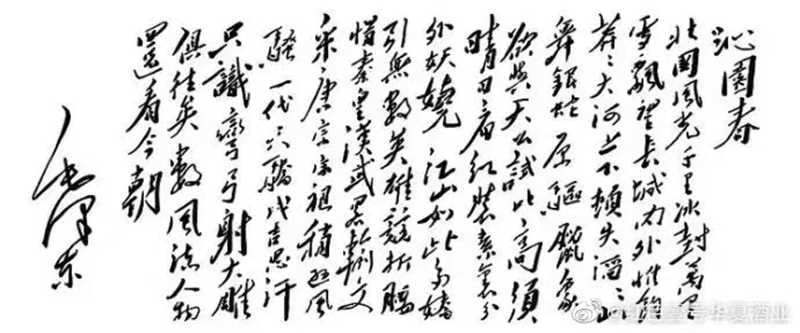 沁園春
北國風光千里冰封萬里
雪飄望長城內外惟餘
莽々大河上下頓失滔々
舞銀蛇原驅臘象
欲與天公試比高須
晴日看紅裝素裹分
外妖嬈江山如此多嬌
引無數英雄競折腰
惜秦皇漢武略輸文
采唐宗宋祖稍遜風
騷一代天驕成吉思汗
只識彎弓射大雕
俱往矣數風流人物
還看今朝
毛澤东
壹号华夏酒业